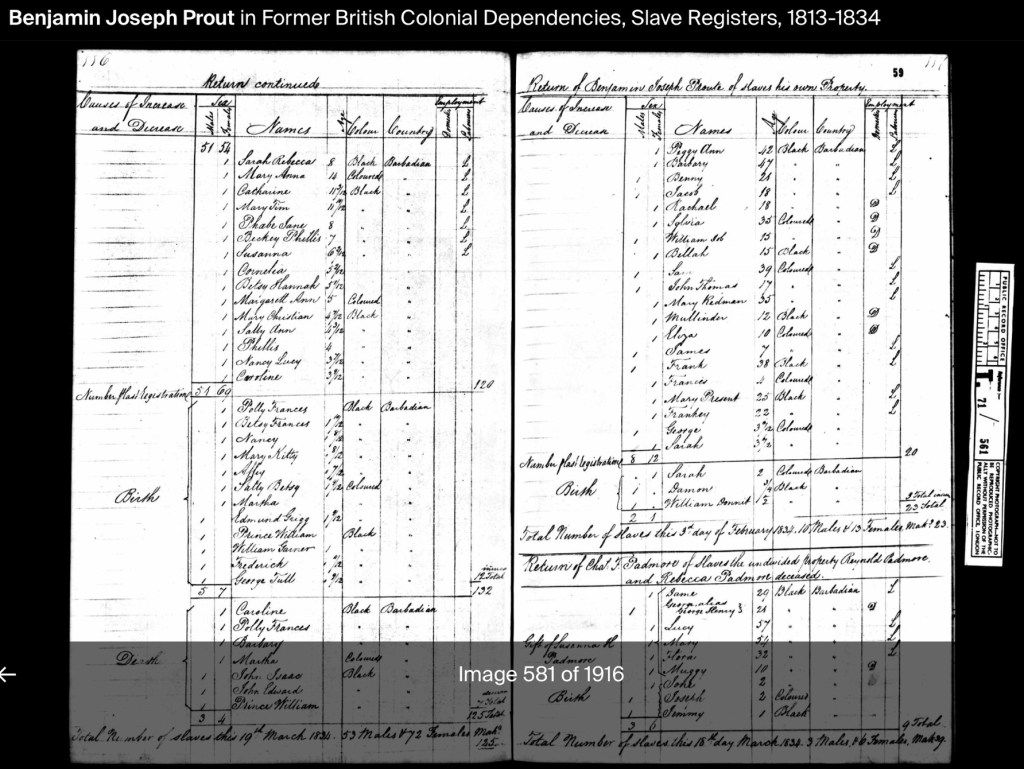 Benjamin Joseph Prout in Former British Colonial Dependencies, Slave Registers, 1813-1834
Return continued
Causes of Increase and Decrease
Sex
Males Females
Names
Age
Colour
Country
Employment
51 54
1 Sarah Rebecca 8 Black Barbadian L
1 Mary Anna 14 Coloured " L
1 Catharine Black " L
1 Mary Tim " " L
1 Phabe Jane 8 " " L
1 Beckey Phillis 7 " " L
1 Susanna " " L
1 Cornelia " "
1 Betsy Hannah " "
1 Margarett Ann 5 Coloured "
1 Mary Christian Black "
1 Sally Ann " "
1 Phillis 4 " "
1 Nancy Lucy " "
1 Caroline " "
120
Number last registration 51 69
Birth
1 Polly Frances Black Barbadian
1 Betsy Frances " "
1 Nancy " "
1 Mary Kitty " "
1 Affey " "
1 Sally Betsy Coloured "
1 Martha " "
1 Edmund Grigg " "
1 Prince William Black "
1 William Garner 1 " "
1 Frederick " "
1 George Tull " "
5 7
12 Total
132
Death
1 Caroline Black Barbadian
1 Polly Frances " "
1 Barbary " "
1 Martha Coloured "
1 John Isaac Black "
1 John Edward " "
1 Prince William
3 4
7 Total
125 Total
Total Number of slaves this 19th March 1834. 53 Males & 72 Females Mak.g 125.
59
Return of Benjamin Joseph Proute of slaves his own Property.
Causes of Increase and Decrease
Sex
Males Females
Names
Age
Colour
Country
Employment
1 Peggy Ann 42 Black Barbadian L
1 Barbary 47 " " L
1 Benny 21 " " L
1 Jacob 18 " " L
1 Rachael 18 " " D
1 Sylvia 35 Coloured " D
1 William 15 " " D
1 Bellah 15 Black " D
39 Coloured " L
1 John Thomas 17 " " L
1 Mary Redman 35 " "
1 Mullinder 12 Black " D
1 Eliza 10 Coloured " D
1 James 7 " " L
1 Frank 38 Black " L
1 Frances 4 Coloured "
1 Mary Present 25 Black " L
1 Frankey 22 " " L
1 George Coloured "
1 Sarah " "
20
Number last registration 8 12
Birth
1 Sarah 2 Coloured Barbadian
1 Damon Black "
1 William " "
2 1
3 Total
23 Total
Total Number of slaves this 3rd day of February 1834. 10 Males & 13 Females Mak.g 23.
Return of Chas. F. Padmore of slaves the undivided property Reynold Padmore and Rebecca Padmore deceased.
1 29 Black Barbadian L
1 George alias George Henry 21 " " D
1 Lucy 57 " " L
Gift of Susannah Padmore
1 Mary 54 " " L
1 Flora 32 " " L
1 Muggy 10 " " D
1 2 " "
Birth
1 Joseph 2 Coloured "
1 Jemmy 1 Black "
3 6
9 Total
Total Number of slaves this 18th day March 1834. 3 Males, & 6 Females, Mak.g 9.
Image 581 of 1916
PUBLIC RECORD OFFICE
Reference:-
T. 71 / 561
COPYRIGHT PHOTOGRAPH-NOT TO BE REPRODUCED PHOTOGRAPHICALLY WITHOUT PERMISSION OF THE PUBLIC RECORD OFFICE, LONDON